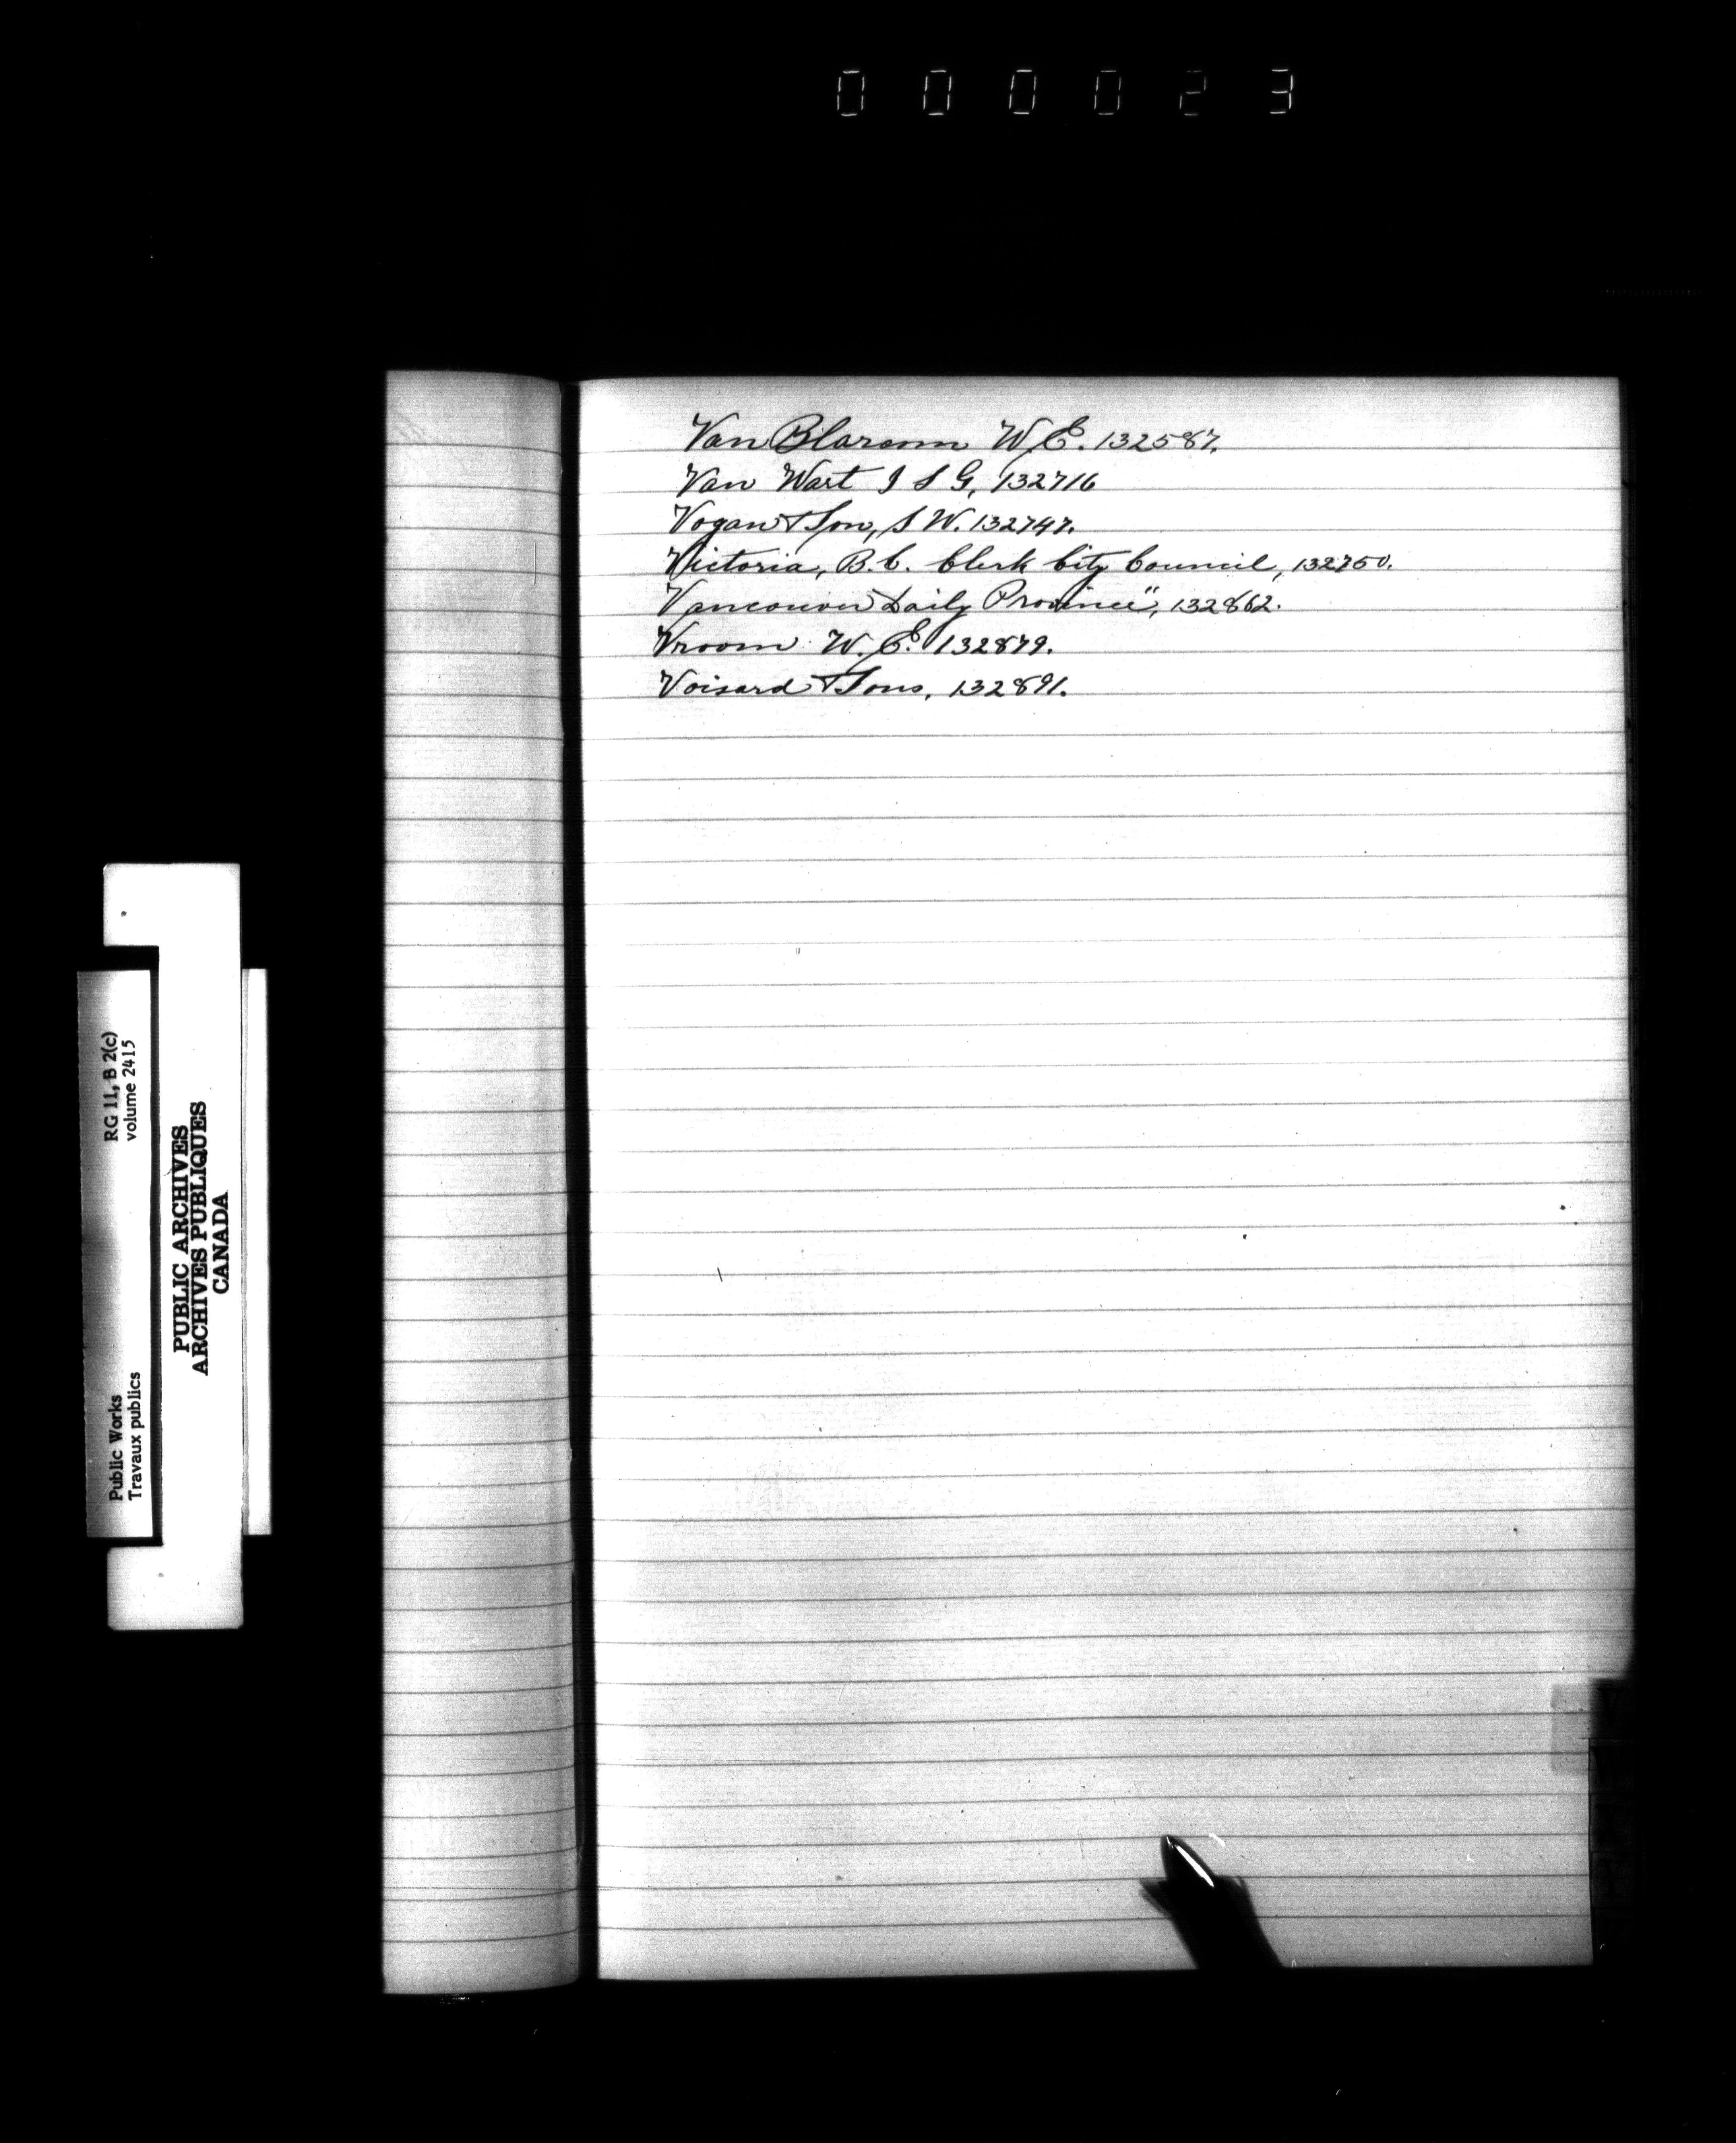 000023
Van Blarcom W.E. 132587.
Van Wart J S G, 132716
Vogan & Son, S W. 132747.
Victoria, B.C. Clerk City Council, 132750.
Vancouver Daily Province", 132862.
Vroom W. E. 132879.
Voisard & Sons, 132891.
RG 11, B 2(c)
volume 2415
PUBLIC ARCHIVES
ARCHIVES PUBLIQUES
CANADA
Public Works
Travaux publics